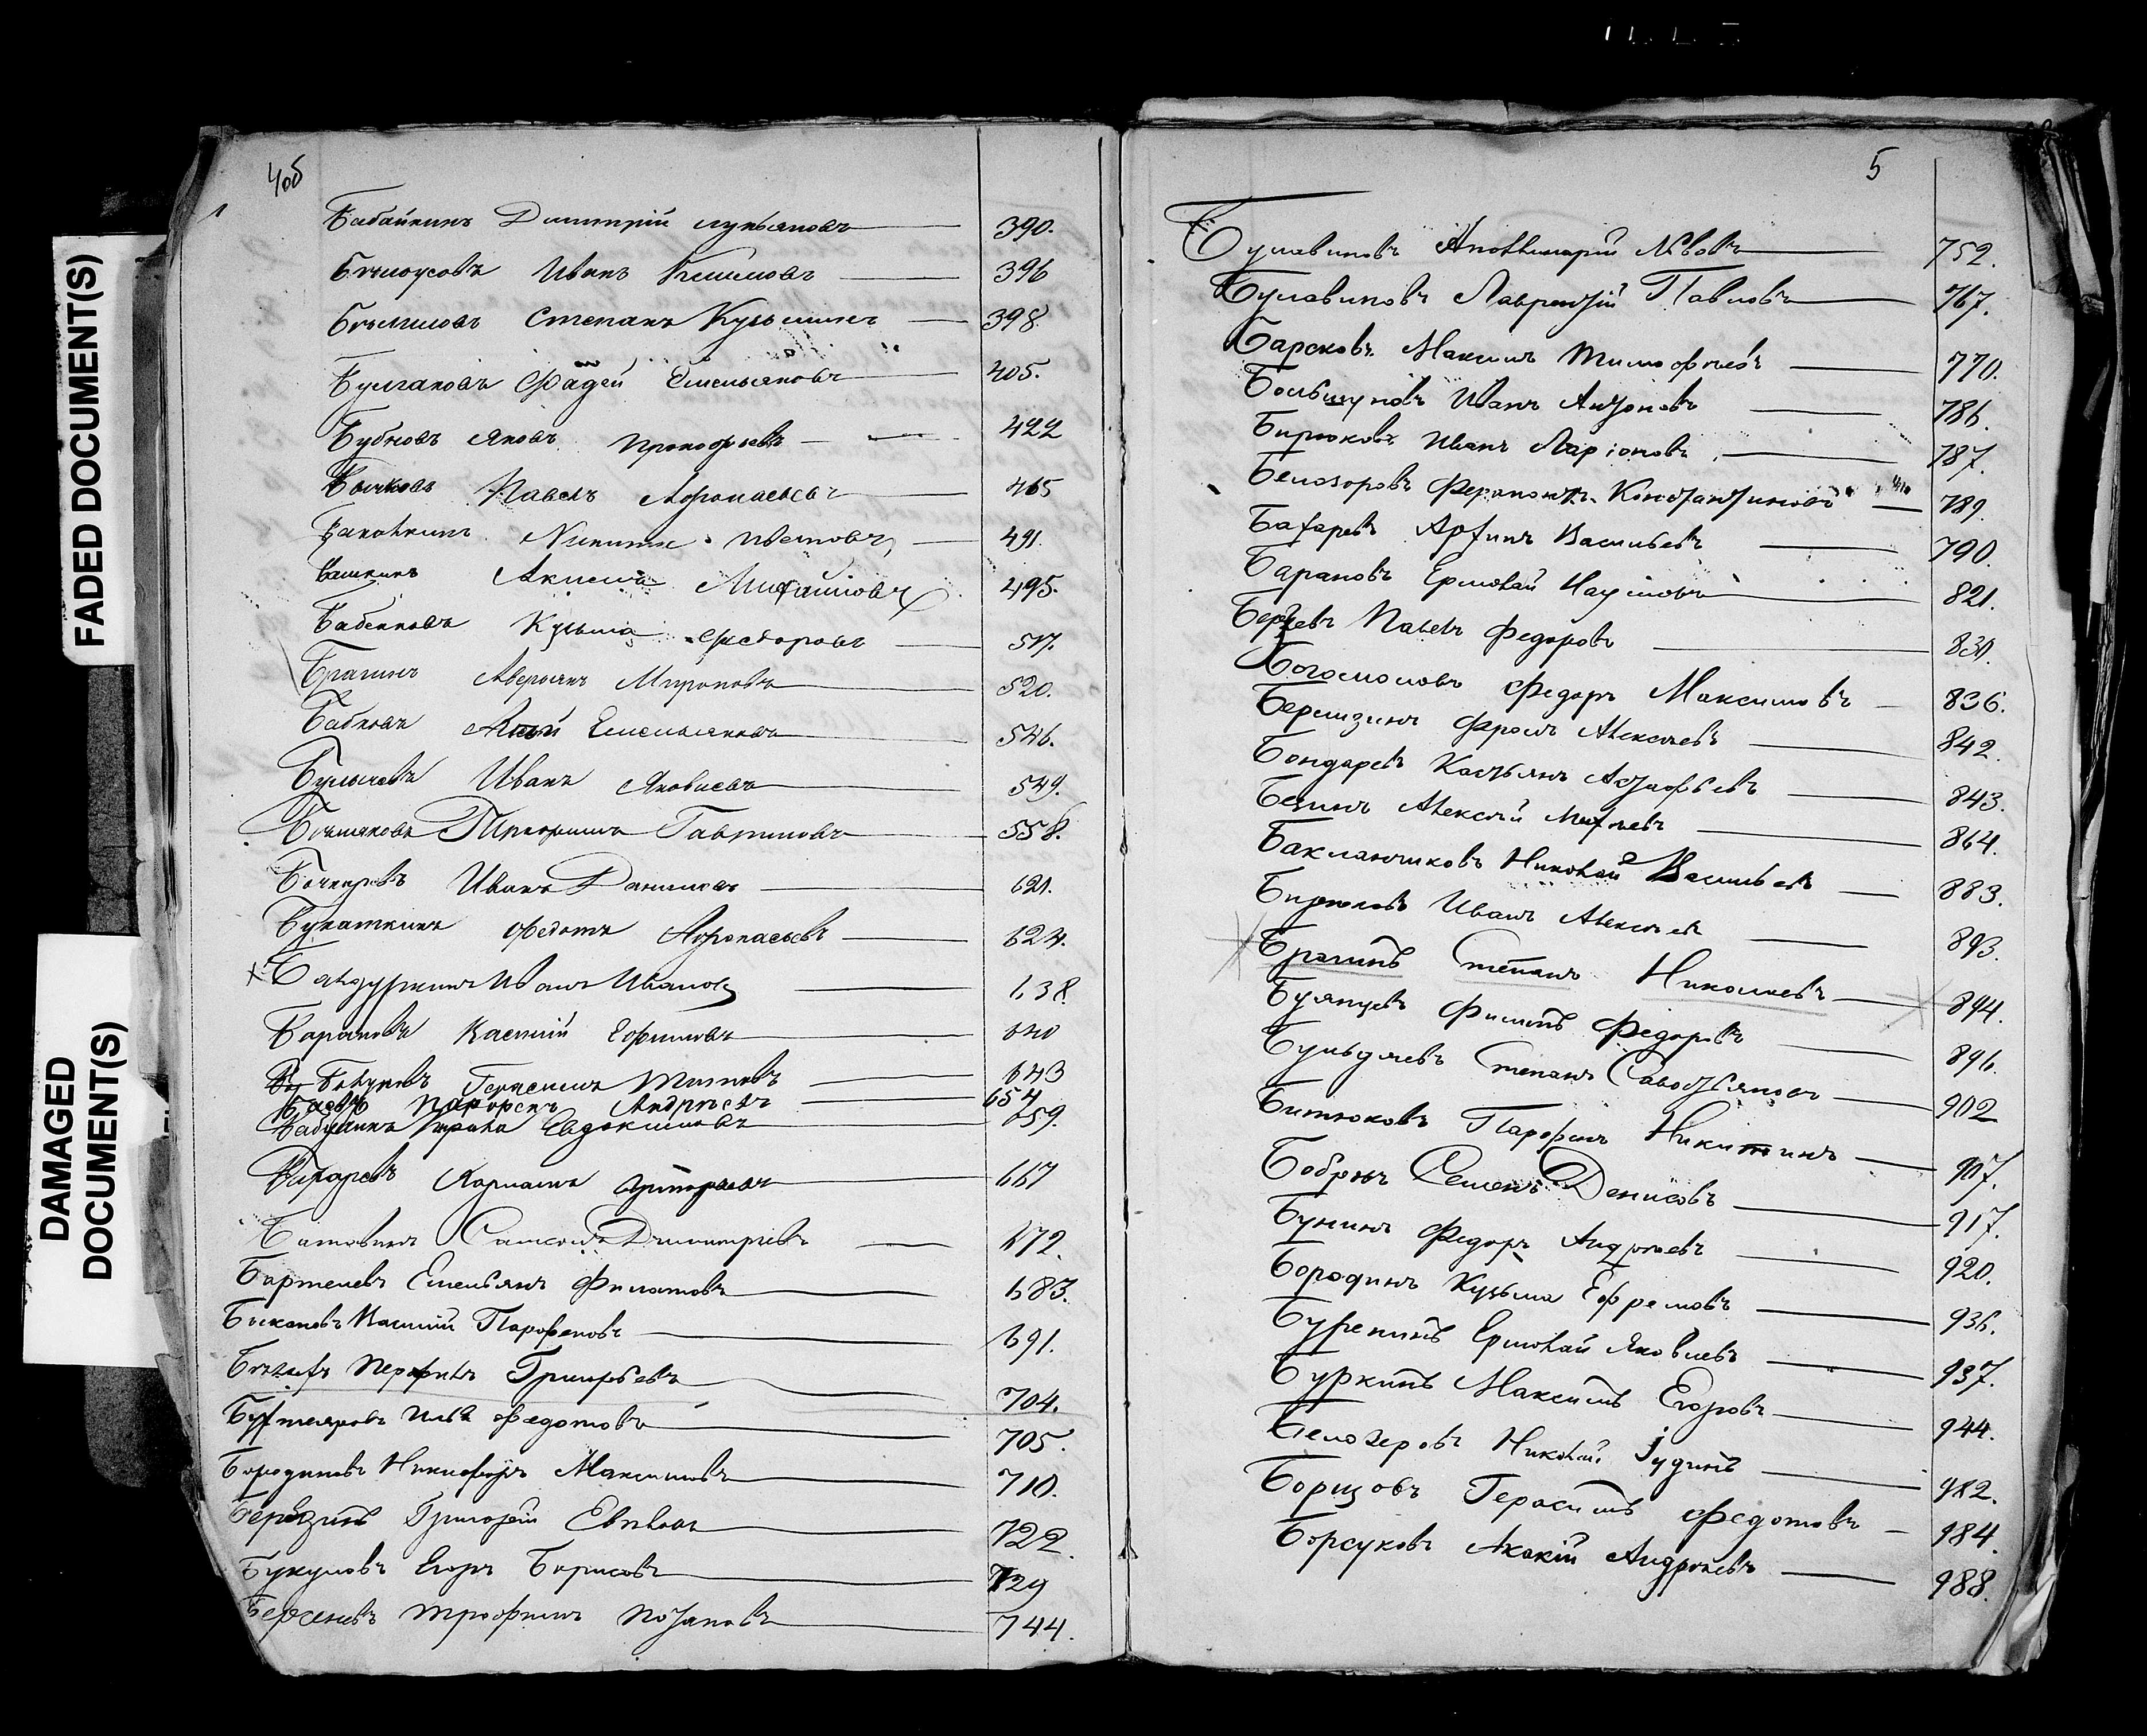 FADED DOCUMENT(S)
DAMAGED
DOCUMENT(S)
4об
Бабайкинъ Дмитрій Лукьяновъ 390.
Бѣлоусовъ Иванъ 396
Степанъ Кузьминъ 398.
Булгаковъ Фадей Емельяновъ 405.
Бубновъ Яковъ Прокофьевъ 422
Бычковъ Павелъ Афонасьевъ 465
Никита 491.
Башкинъ Акимъ Михайловъ 495.
Бабенковъ Кузьма Федоровъ 517.
Брагинъ Аверьянъ Мироновъ 520.
Бабковъ Емельяновъ 546.
Булычевъ Иванъ Яковлевъ 549.
Гавриловъ 558.
Бочкаревъ Иванъ Даниловъ 621.
Букаткинъ Федотъ Афонасьевъ 624.
Бандуркинъ Иванъ Ивановъ 638.
Барановъ Василій Ефимовъ 640
Герасимъ Титовъ 643
Баевъ Парфенъ Андреевъ 654
Евдокимовъ 659.
667
Батовинъ Самсонъ Дмитріевъ 672.
Бартеневъ Емельянъ Филатовъ 683.
Василій Парфеновъ 691.
Григорьевъ 704.
Илья Федотовъ 705.
Бородиновъ Никифоръ Максимовъ 710.
Березинъ Григорій 722.
Букуловъ Егоръ Борисовъ 729
Берсеневъ Трофимъ Потаповъ 744.
5
Булавиновъ Аполлинарій Львовъ 752.
Булавиновъ Лаврентій Павловъ 767.
Барсковъ Максимъ Тимофѣевъ 770.
Большуновъ Иванъ Антоновъ 786.
Бирюковъ Иванъ Ларіоновъ 787.
Белозоровъ Ферапонтъ Константиновъ 789.
Бахаревъ Васильевъ 790.
Барановъ Ермолай Наумовъ 821.
Павелъ Федоровъ 830.
Богомоловъ Федоръ Максимовъ 836.
Фролъ Алексѣевъ 842.
Бондаревъ Касьянъ Астафьевъ 843.
Безинъ Алексѣй Михѣевъ 864.
Бакланчиковъ Николай Васильевъ 883.
Бирюковъ Иванъ Алексѣевъ 893.
Брагинъ Степанъ Николаевъ 894.
Буянцевъ Филипъ Федоровъ 896.
Бульдяевъ Степанъ Савостьяновъ 902
Битюковъ Парфенъ Никитинъ 907.
Бобровъ Семенъ Денисовъ 917.
Бунинъ Федоръ Андрѣевъ 920.
Бородинъ Кузьма Ефремовъ 936.
Буренинъ Ермолай Яковлевъ 937.
Буркинъ Максимъ Егоровъ 944.
Белозеровъ Николай Іудинъ 982.
Борщовъ Герасимъ Федотовъ 984.
Борсуковъ Акакій Андрѣевъ 988.